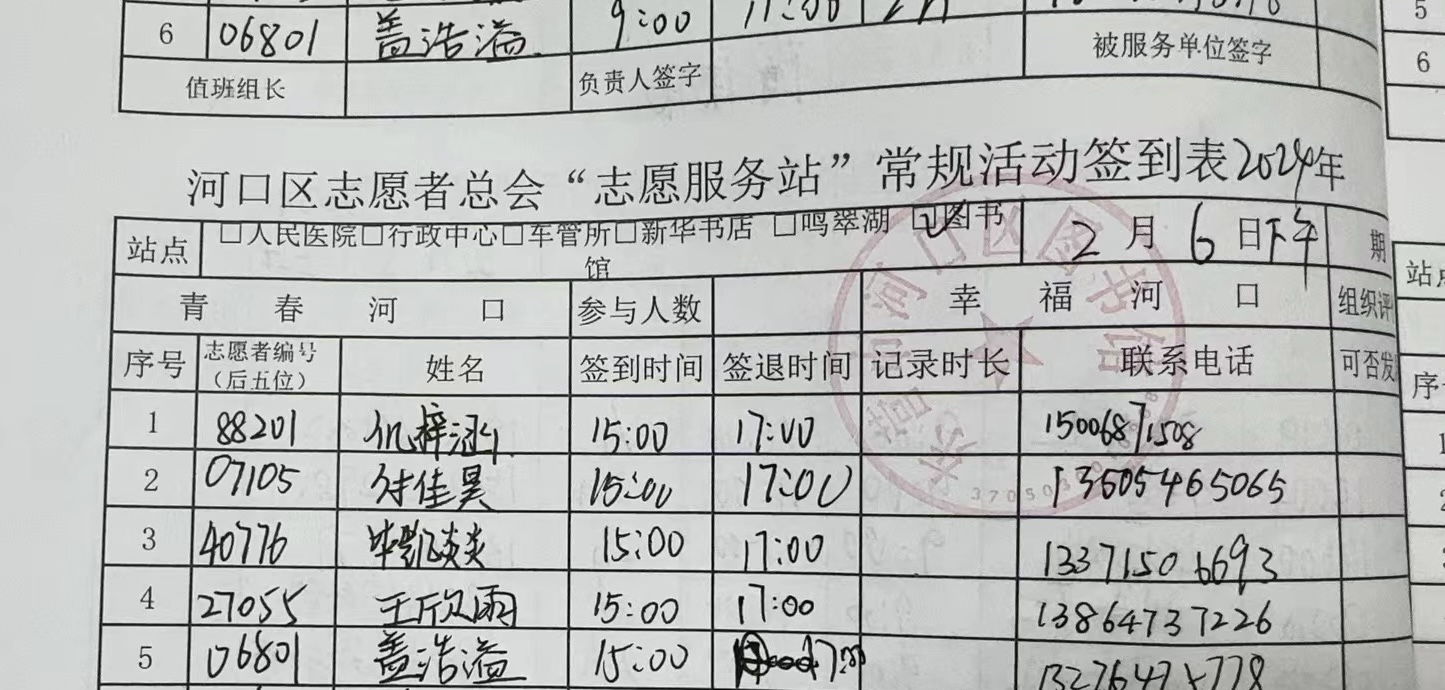 6 06801 盖浩溢 9:00 11:00
值班组长 负责人签字 被服务单位签字
河口区志愿者总会“志愿服务站”常规活动签到表2024年
站点 □人民医院□行政中心□车管所□新华书店 □鸣翠湖 ☑图书馆 2月6日下午 期
青春河口 参与人数 幸福河口 组织评
序号 志愿者编号（后五位） 姓名 签到时间 签退时间 记录时长 联系电话 可否发
1 88201 仉梓涵 15:00 17:00 15006871508
2 07105 付佳昊 15:00 17:00 13505465065
3 40776 毕凯焱 15:00 17:00 13371506693
4 27055 王欣雨 15:00 17:00 13864737226
5 06801 盖浩溢 15:00 17:00
5
6
站点
序